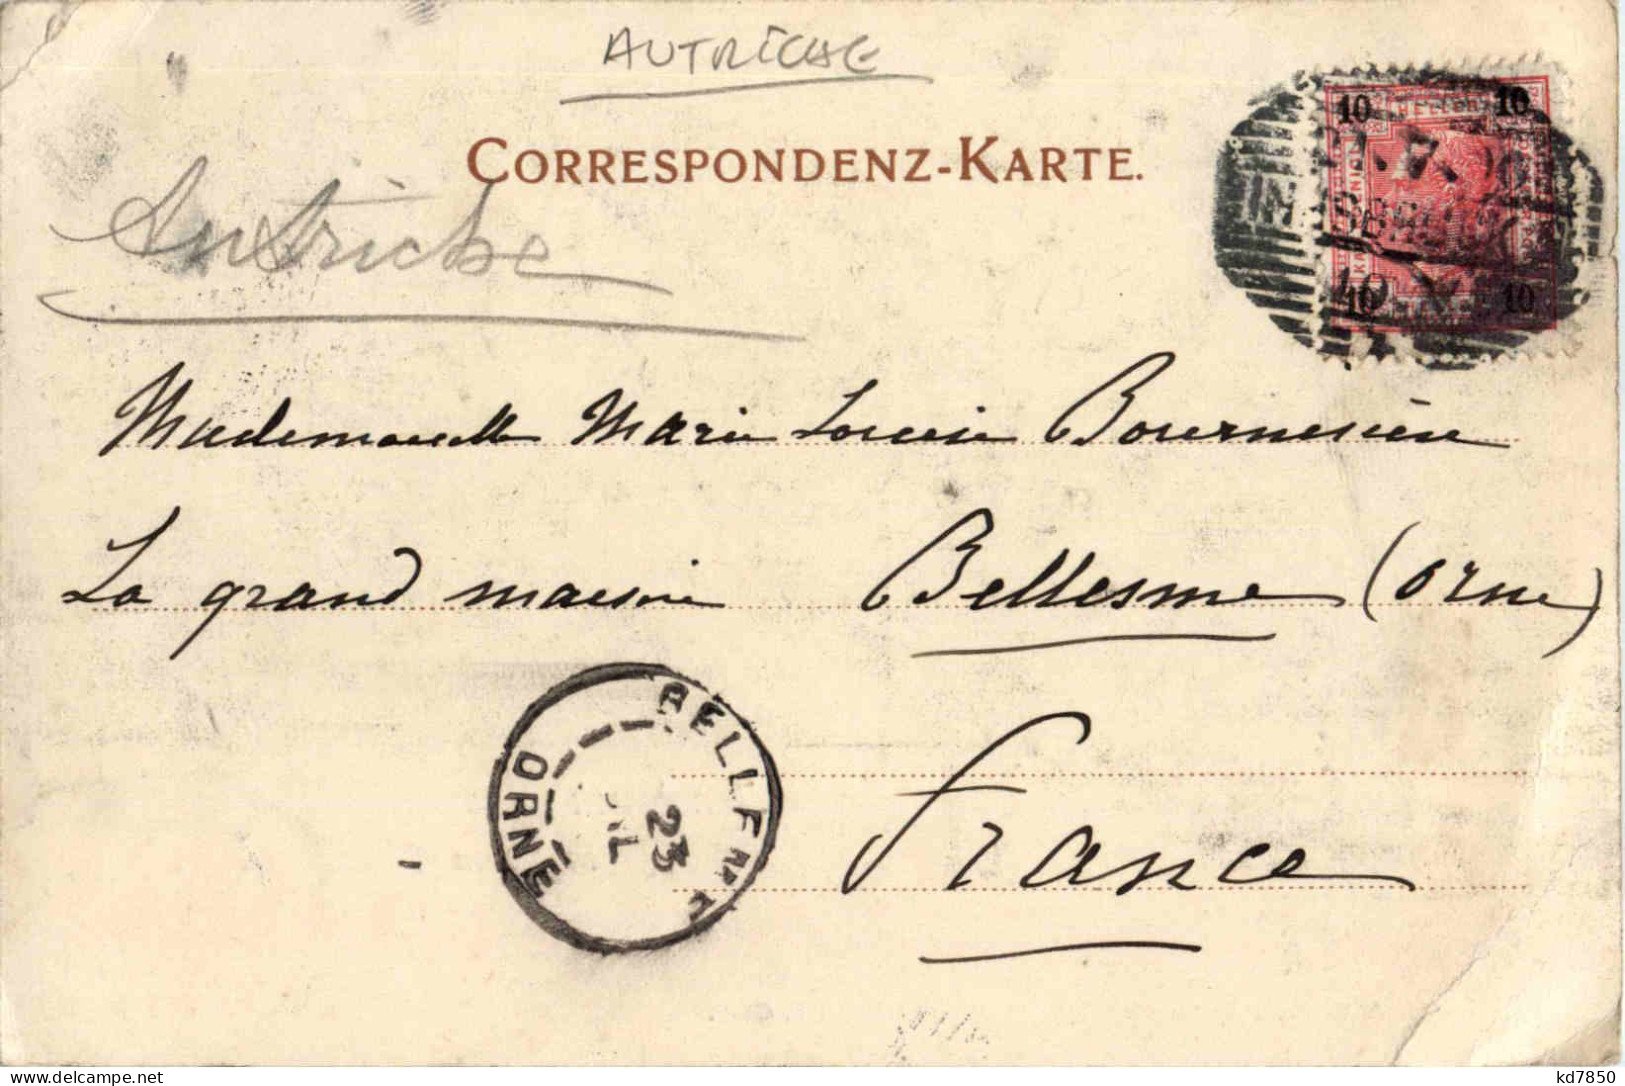 AUTRICHE
CORRESPONDENZ-KARTE.
Autriche
10 10
INNSBRUCK
10 10
Mademoiselle Marie Louise
La grand maison Bellesme (Orne)
BELLEME
23
ORNE
France
kd7850